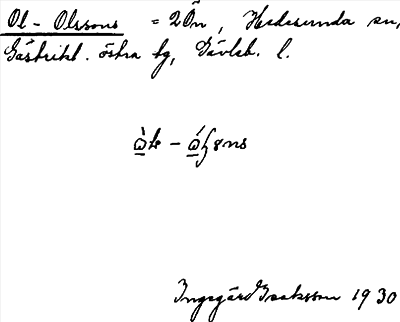 Ol-Olssons = 2 Ön, Hedesunda sn,
Gästrikl. östra tg, Gävleb. l.
Ingegärd Isaksson 1930